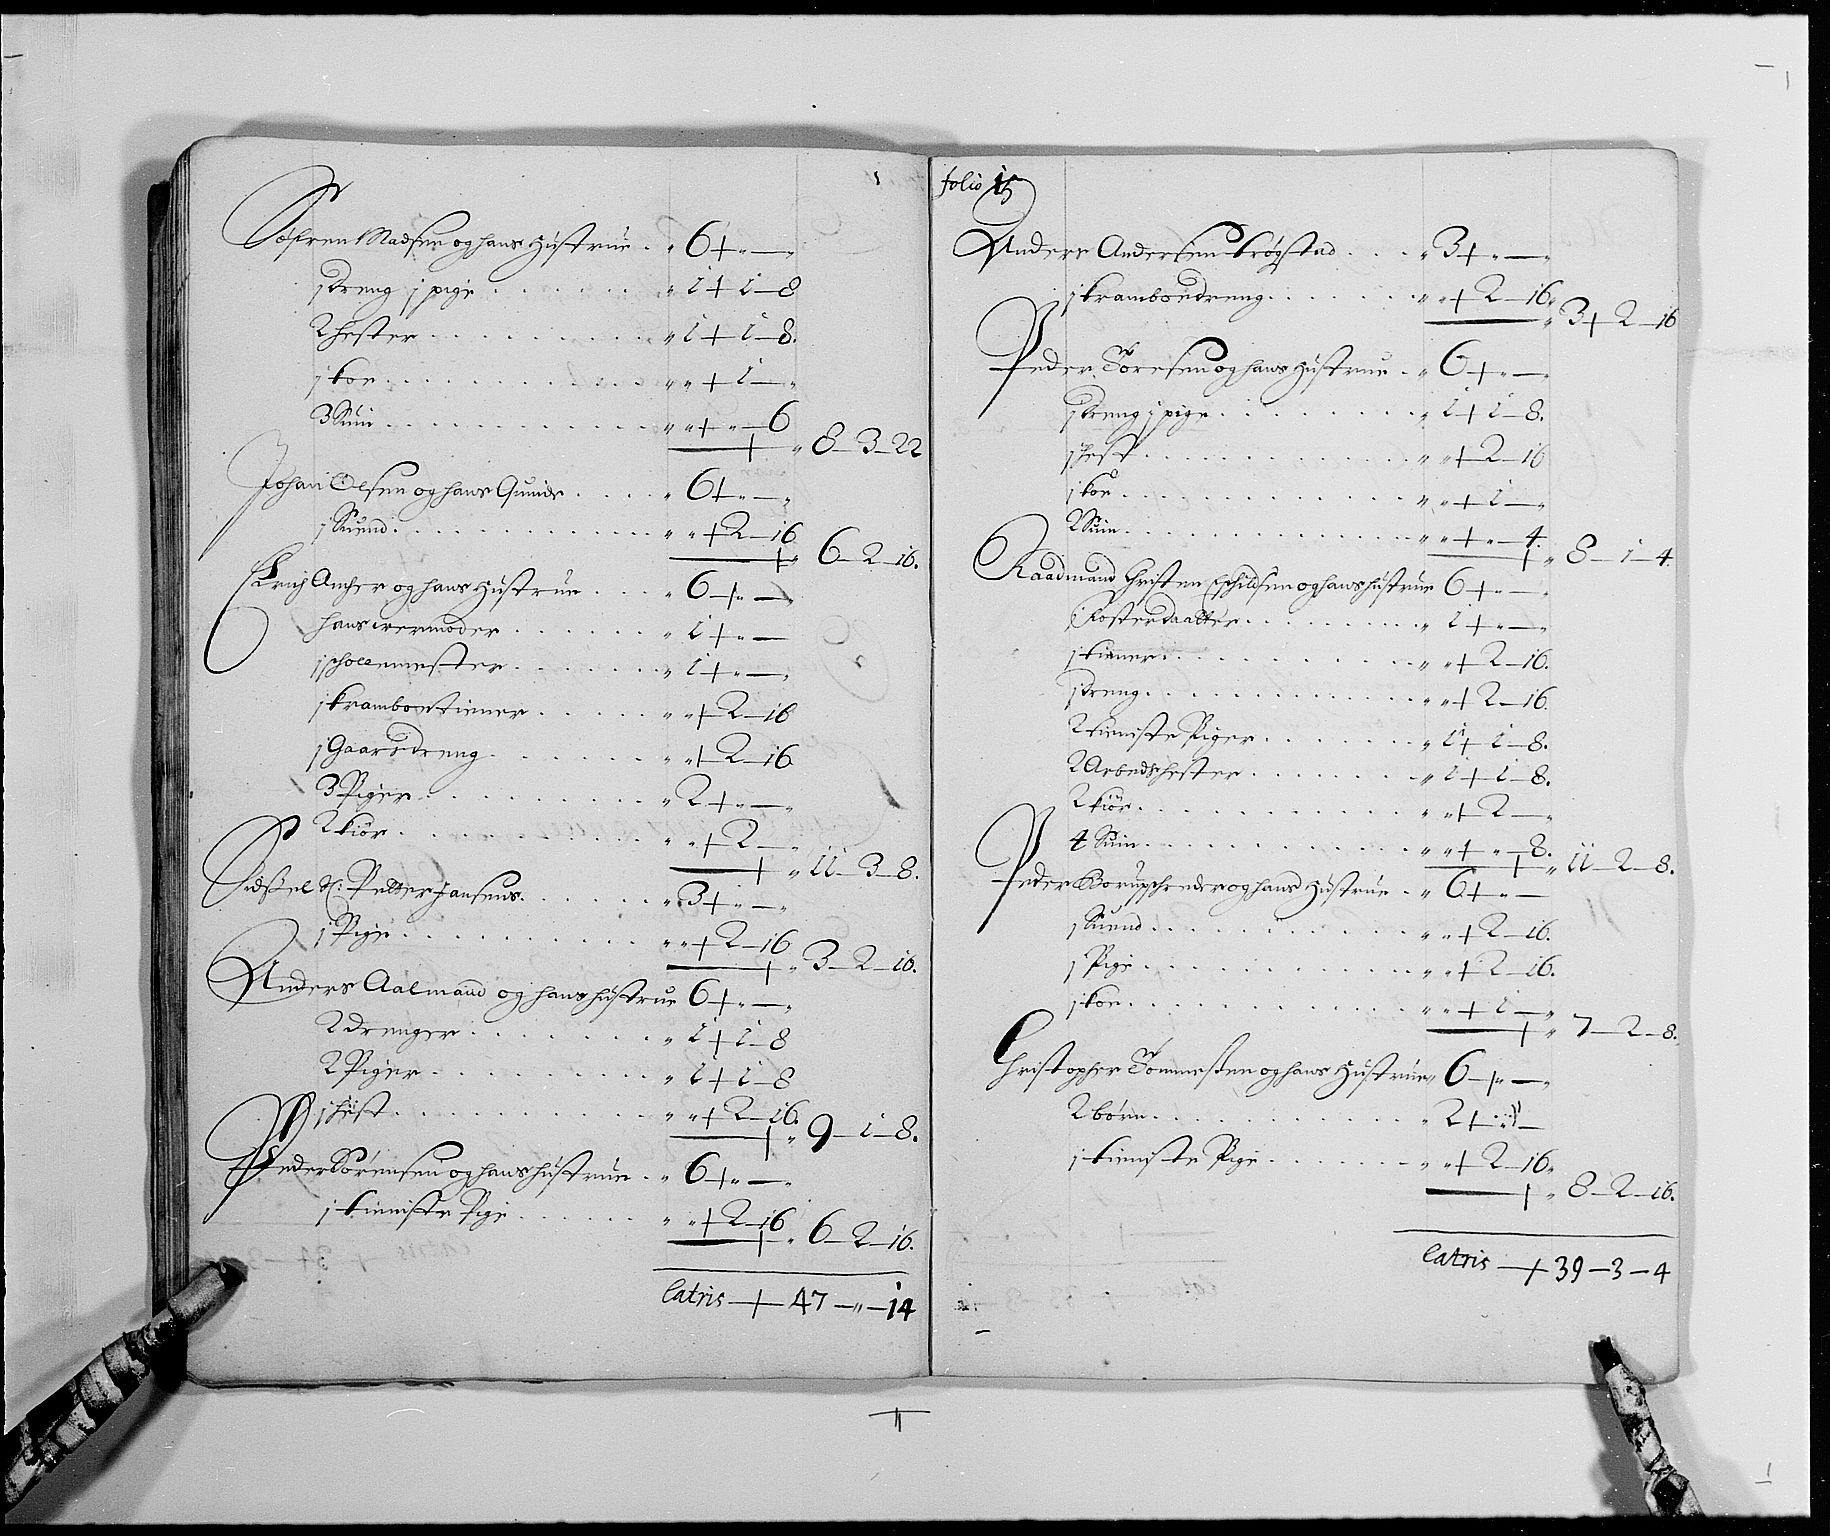 Søfren Madsen og hans Hustrue . „ 6 + „ — „
j dreng j pige . . . . . . „ 1 + 1 — 8
2 hester . . . . . . . . . „ 1 + 1 — 8.
j koe . . . . . . . . . . „ „ + 1 — „
3 Suin . . . . . . . . . . „ „ + „ — 6
„ 8 — 3 — 22
Johan Olsen og hans Quinde . . . . „ 6 + „ — „
j Suend . . . . . . . . . . „ „ + 2 — 16
„ 6 — 2 — 16.
Erich Ancher og hans Hustrue . . . . „ 6 + „ — „
hans wermoder . . . . . . „ 1 + „ —
j scholemester . . . . . . „ 1 + „ — „
j kramboetiener . . . . . „ „ + 2 — 16
j Gaarsdreng . . . . . . „ „ + 2 — 16
3 Piger . . . . . . . . . „ 2 + „ — „
2 kiör . . . . . . . . . . „ „ + 2 — „
„ 11 — 3 — 8.
Sidßel Sl: Petter Jansens . . . . . „ 3 + „ — „
j Pige . . . . . . . . . . „ „ + 2 — 16
„ 3 — 2 — 16.
Anders Aalmand og hans hustrue 6 + „ — „
2 drenger . . . . . . . . „ 1 + 1 — 8
2 Piger . . . . . . . . . „ 1 + 1 — 8
j hest . . . . . . . . . . „ „ + 2 — 16.
„ 9 — 1 — 8.
Peder Sörensen og hans hustrue . „ 6 + „ — „
j tieniste Pige . . . . . . „ „ + 2 — 16
„ 6 — 2 — 16.
Latris + 47 — „ — 14
folio 15
Anders Andersen brögstad . . . . „ 3 + „ — „
j kramboedreng . . . . . . „ „ + 2 — 16 „
„ 3 + 2 — 16
Peder Töresen og hans Hustrue . „ 6 + „ — „
j dreng j pige . . . . . . . „ 1 + 1 — 8.
j hest . . . . . . . . . . „ „ + 2 — 16
j koe . . . . . . . . . . „ „ + 1 — „
2 Suin . . . . . . . . . . „ „ + „ — 4.
„ 8 — 1 — 4.
Raadmand Christen Eschildsen og hans hustrue 6 + „ — „
j Fosterdaatter . . . . . . „ 1 + „ — „
j tiener . . . . . . . . . „ „ + 2 — 16.
j dreng . . . . . . . . . „ „ + 2 — 16.
2 tieniste Piger . . . . . „ 1 + 1 — 8.
2 Arbedshester . . . . . . „ 1 + 1 — 8.
2 kiör . . . . . . . . . . „ „ + 2 — „
4 Suin . . . . . . . . . . „ „ + „ — 8.
„ 11 — 2 — 8.
Peder Borup schreder og hans Hustrue . „ 6 + „ —
j Suend . . . . . . . . . . „ „ + 2 — 16.
j Pige . . . . . . . . . . „ „ + 2 — 16.
j koe . . . . . . . . . . „ „ + 1 — „
„ 7 — 2 — 8.
Christopher Tommesßen og hans Hustrue „ 6 + „ — „
2 börn . . . . . . . . . . „ 2 + „ —
j tieniste Pige . . . . . . „ „ + 2 — 16 „
„ 8 — 2 — 16.
Latris + 39 — 3 — 4